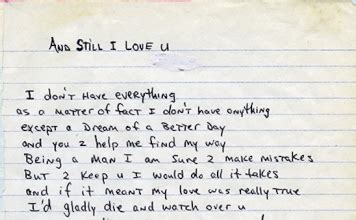 AND STILL I LOVE U
I DON'T HAVE EVERYTHING
AS A MATTER OF FACT I DON'T HAVE ANYTHING
EXCEPT A DREAM OF A BETTER DAY
AND YOU 2 HELP ME FIND MY WAY
BEING A MAN I AM SURE 2 MAKE MISTAKES
BUT 2 KEEP U I WOULD DO ALL IT TAKES
AND IF IT MEANT MY LOVE WAS REALLY TRUE
I'D GLADLY DIE AND WATCH OVER U